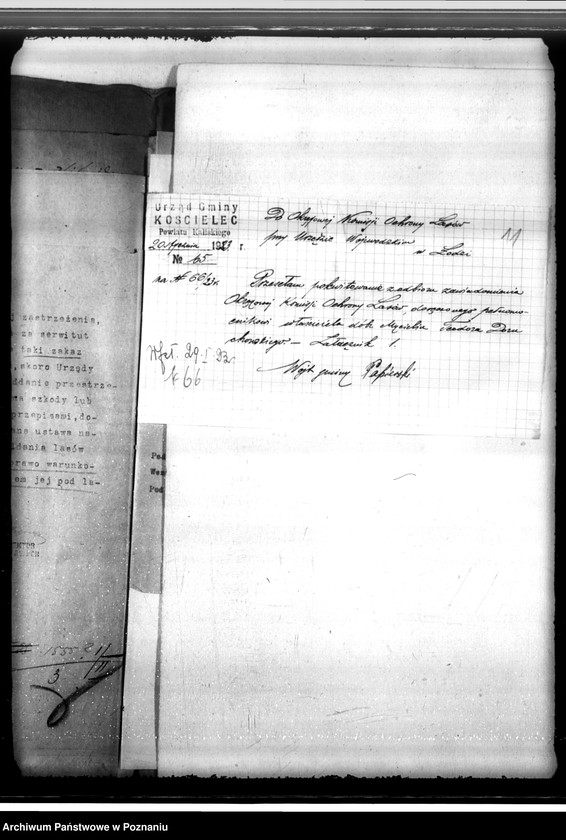 Urząd Gminy
KOŚCIELEC
Powiatu Kaliskiego
20 stycznia 19 r.
№ 65
na № 66/
Do Okręgowej Komisji Ochrony Lasów
przy Urzędzie Wojewódzkim
w Łodzi
11
Przesyłam pokwitowanie z odbioru zawiadomienia
Okręgowej Komisji Ochrony Lasów, doręczonego pełnomo-
cnikowi właściciela dób Teodora
Załącznik 1.
Wójt gminy
Wpł. 29.I.32
№ 66
zastrzeżenia,
za serwitut
taki zakaz
, skoro Urzędy
ddanie przestrze-
za szkody lub
przepisami, do-
ustawa na-
lasów
prawo warunko-
em jej pod la-
Pod
3
II
Archiwum Państwowe w Poznaniu